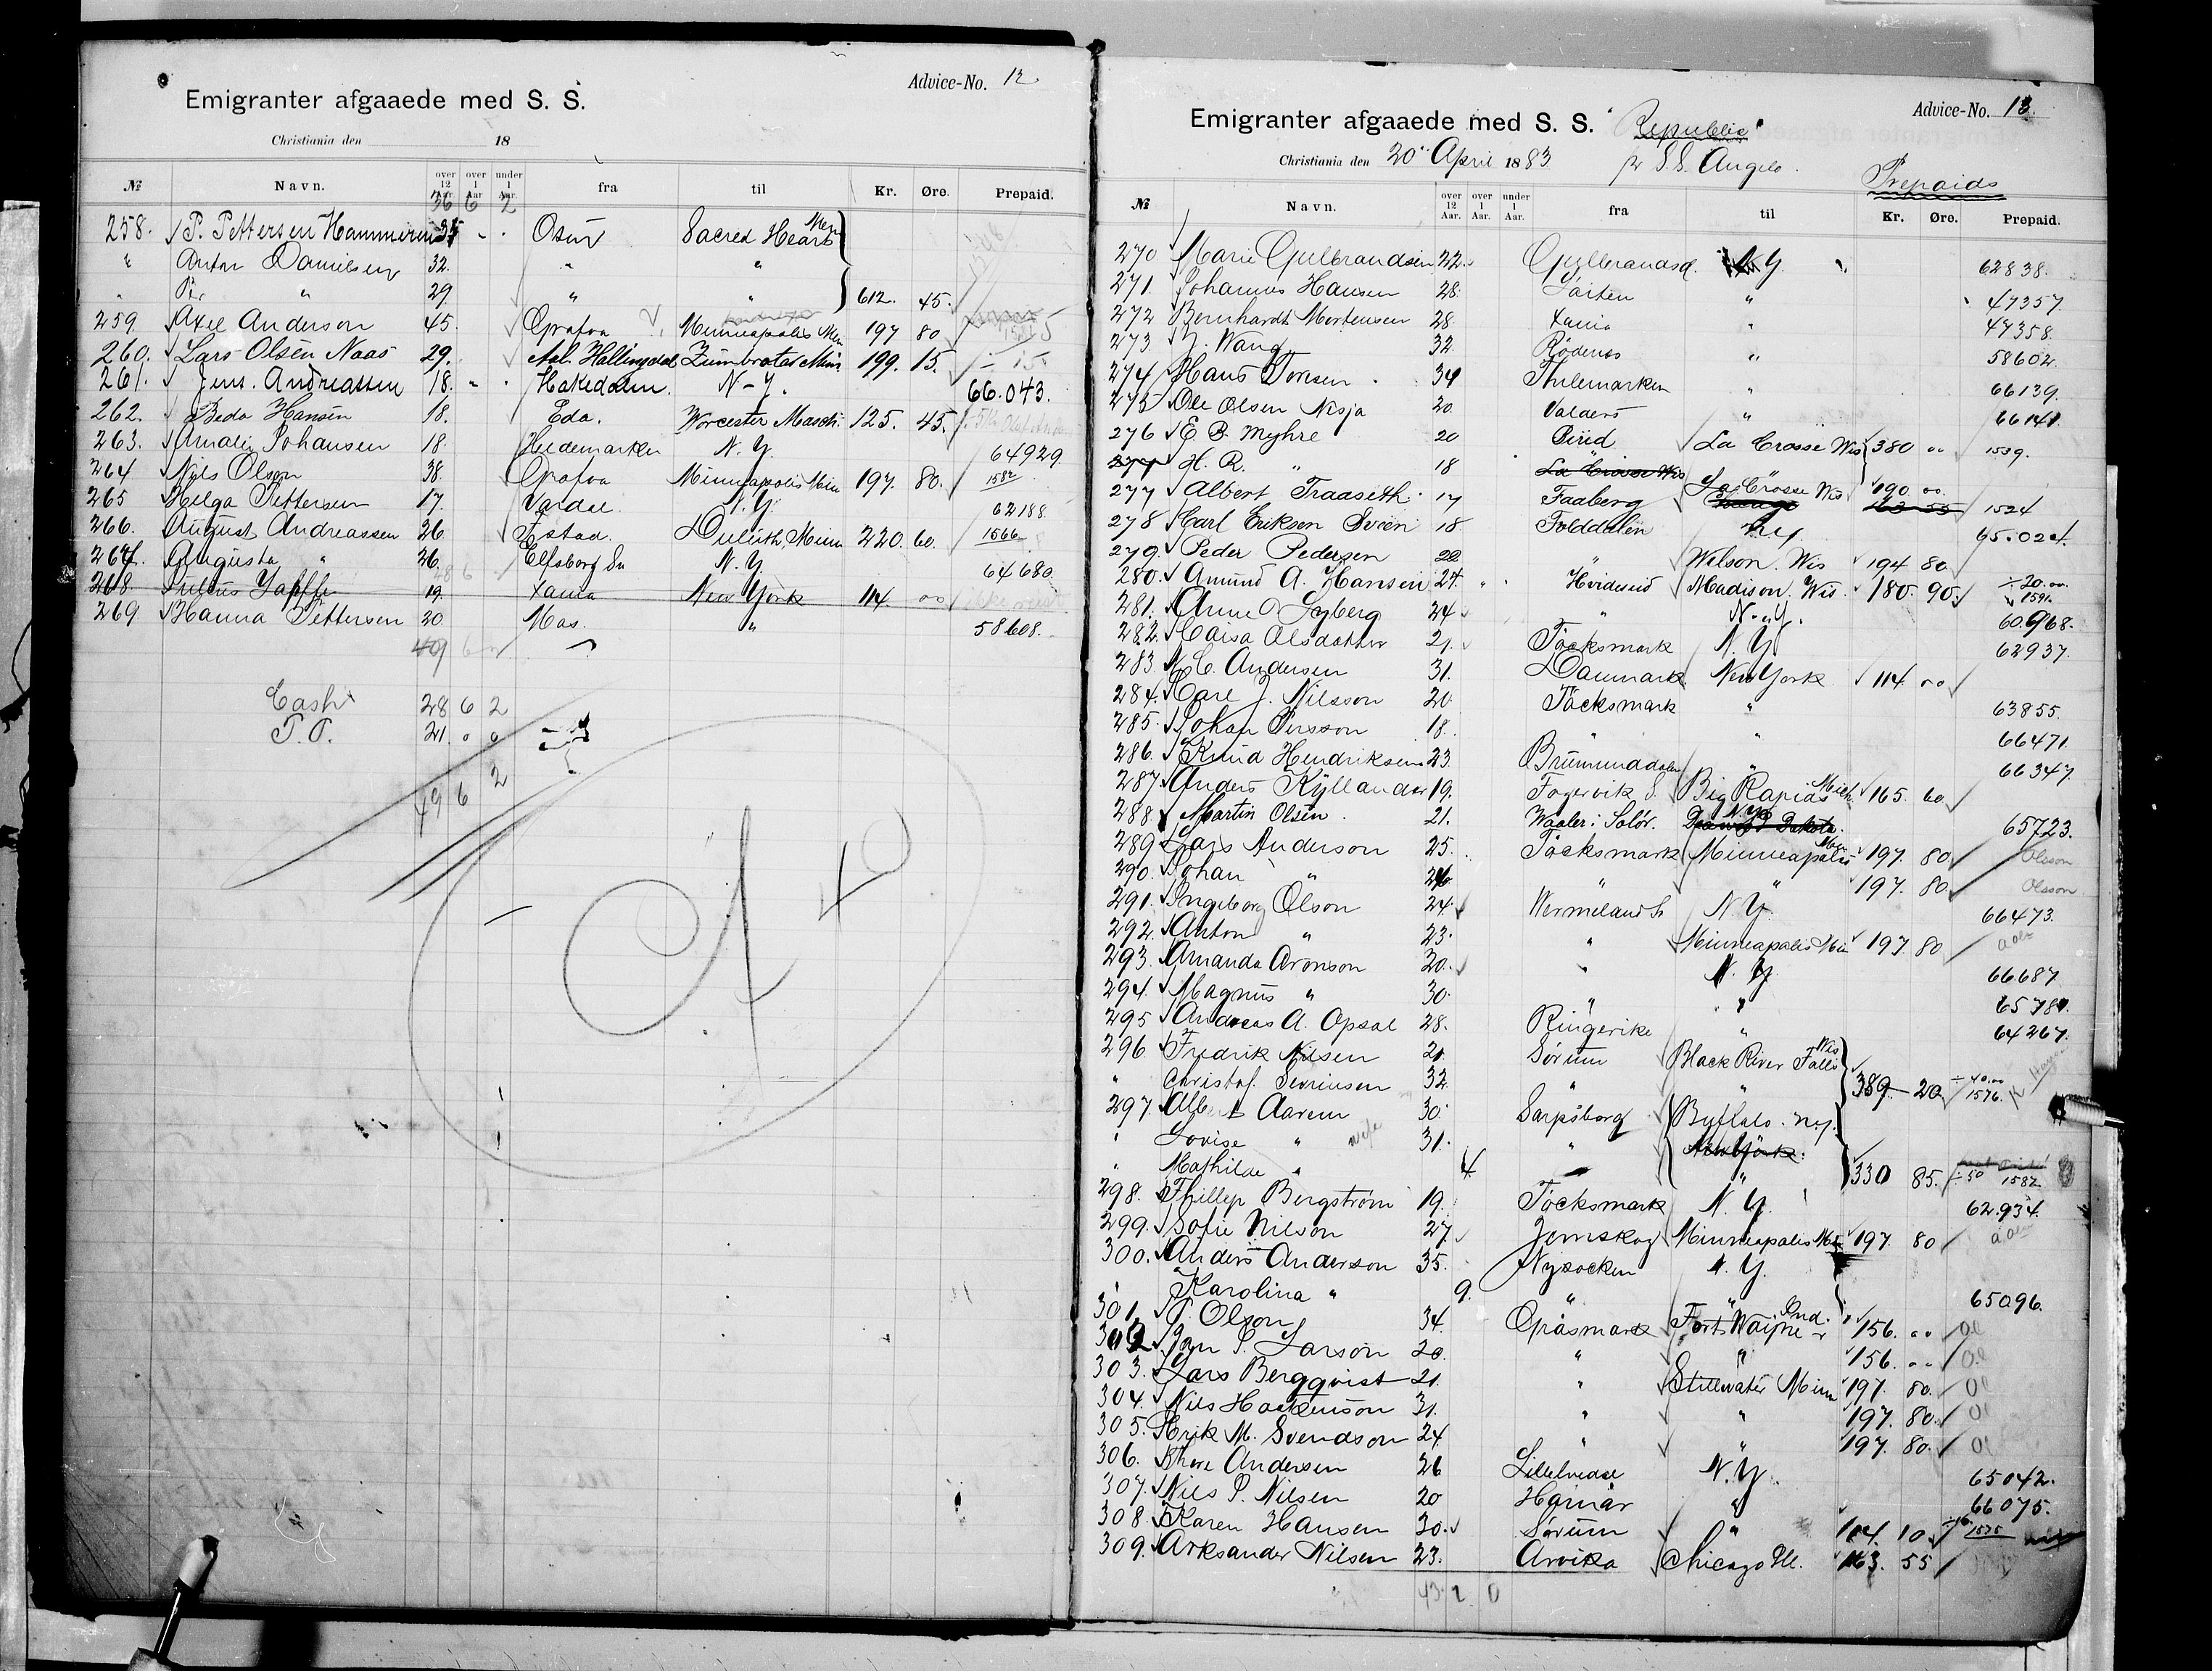 Advice-No. 12
Emigranter afgaaede med S. S.
Christiania den 18
№ Navn. over 12 Aar. over 1 Aar. under 1 Aar. fra til Kr. Øre. Prepaid.
36 6 2
258. P. Pettersen Hammeren Osen Sacred Heart Min
" Anton Danielsen 32. " "
" Per " 29 " " 612. 45.
259 Axel Anderson 45. Grafva Minneapolis Min 197 80
260. Lars Olsen Naas 29. Aal. Hallingdal Zumbrota Min 199. 15.
261. Jens. Andreassen 18. Hakedalen N-Y. 66.043.
262. Beda Hansen 18. Eda. Worcester Masch. 125. 45.
263. Amalie Johansen 18. Hedemarken N.Y. 64929.
264 Nils Olson 38. Grafva Minneapolis Min 197. 80. 1582
265 Helga Pettersen 17. Vardal N.Y. 62188
266. August Andreassen 26 Ystad. Duluth, Minn 220. 60. 1566
267. Augusta " 26. Elfsborg Sn N.Y. 64680
268. Julius Jaffe 19. Xania New York 114. 00
269 Hanna Pettersen 30. Mas. " 58608.
49 6 2
Cash 28 6 2
P.P. 21. 0 0
49 6 2
Advice-No. 13.
Emigranter afgaaede med S. S. "Republic"
Christiania den 20' April 1883 pr S.S. Angelo.
Prepaids
№ Navn. over 12 Aar. over 1 Aar. under 1 Aar. fra til Kr. Øre. Prepaid.
270 Marie Gulbrandsen 22. Gulbrandsd. N.Y. 62838.
271. Johannes Hansen 28. Løiten " 47357.
272 Bernhardt Mortensen 28 Xania " 47358.
273 J. Wang 32. Rödenes " 58602.
274 Hans Toresen 34 Thelemarken " 66139.
275 Ole Olsen Nesja 20. Valders " 66141.
276 E. B. Myhre 20 Birid La Crosse Wis 380 00 1539.
277 H. R. " 18 La Crosse Wis "
277 Albert Traaseth 17 Faaberg La Crosse Wis 190. 00. 163 55 1524
278 Carl Eriksen Sveen 18 Folddalen N.Y. 65.024.
279. Peder Pedersen 22. " Wilson. Wis 194 80
280. Amund A. Hansen 24. Hvidesed Madison. Wis. 180. 90. ÷20.00. 1591.
281. Anne Lyberg 24 " N.Y. 60.968.
282. Caisa Olsdatter 21. Töcksmark N.Y 62937.
283 N.C. Andersen 31. Danmark New York 114 00
284. Carl J. Nilsson 20. Töcksmark " 63855.
285. Johan Persson 18. " " 66471.
286. Knud Hendriksen 23 Brumunddalen " 66347.
287. Anders Kyllander 19. Fagervik S. Big Rapids Mich 165. 60.
288. Martin Olsen. 21. Waaler i Solør. N.Y. 65723.
289 Lars Anderson 25. Töcksmark Minneapolis Min 197. 80 Olsson
290. Johan " 26 " " 197. 80 Olsson
291. Ingeborg Olson 24. Wermeland S. N.Y. 66473.
292. Anton " 23. " Minneapolis Min 197 80
293. Amanda Aronson 20. " N.Y. 66687
294. Magnus " 30. " " 65781.
295 Andreas A. Opsal 28. Ringerike " 64267.
296. Fredrik Nilsen 21. Sørum Black River Falls Wis
" Christof. Severinsen 32. " " 389 - 20 ÷40.00 1576.
297. Albert Aarem 30. Sarpsborg Buffalo. N.Y.
" Lovise " wife 31. " New York.
" Mathilde " 4 " " 330 85. ÷50 1582
298. Phillip Bergström 19. Töcksmark N.Y. 62.934.
299. Sofie Nilson 27. Jernskog Minneapolis Min 197. 80
300. Anders Anderson 35. Nysocken N.Y.
" Karolina " 9. " " 65096.
301. P. Olson 34. Gräsmark Fort Wayne Ind. 156. 00 Ol
302. Jan P. Larson 20. " " 156. 00 Ol
303. Lars Bergqvist 21. " Stillwater Minn 197. 80. Ol
304. Nils Haakenson 31. " " 197. 80. Ol
305. Erik M. Svendson 24. " " 197. 80. Ol
306. Thore Andersen 26 Lillelvedal N.Y. 65042.
307. Nils P. Nilsen 20 Hamar " 66075.
308. Karen Hansen 30. Sørum " 104. 10 1575
309. Arksander Nilsen 23. Arvika Chicago Ill. 163. 55
43. 2 0